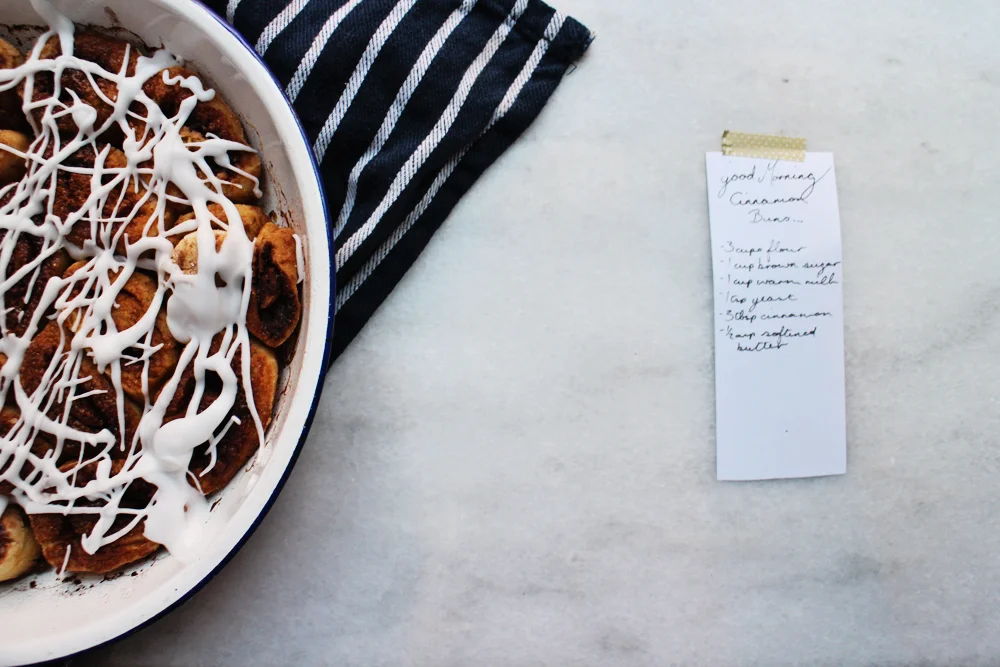 good Morning
Cinnamon
Buns...
-3 cups flour
-1 cup brown sugar
-1 cup warm milk
-1 tsp yeast
-3 tbsp cinnamon
-½ cup softened
butter